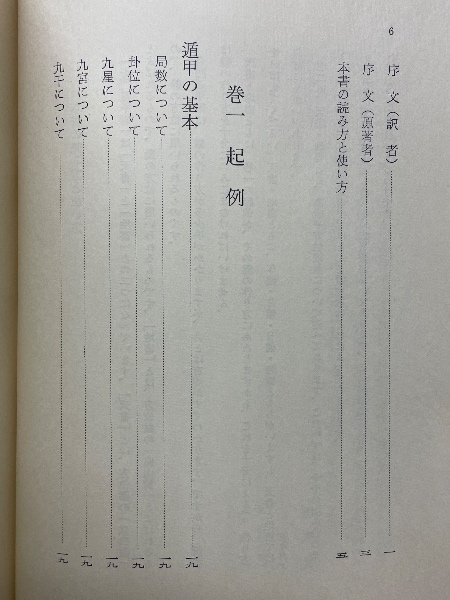 6
序 文（訳 者）……一
序 文（原著者）……三
本書の読み方と使い方……五
巻一 起 例
遁甲の基本……一九
局数について……一九
卦位について……一九
九星について……一九
九宮について……一九
九干について……一九